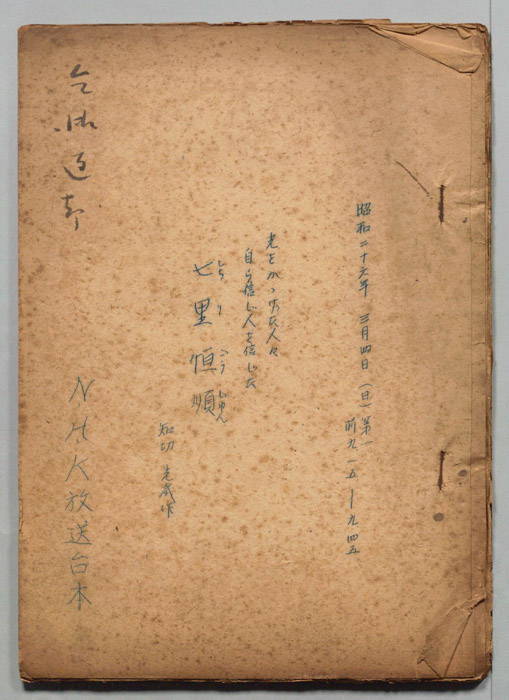 昭和二十六年 三月四日(日)第一
前九一五—九四五
光をかゝげた人々
自ら信じ人を信じた
しちりこうじゅん
七里恒順
知切光歳作
NHK放送台本